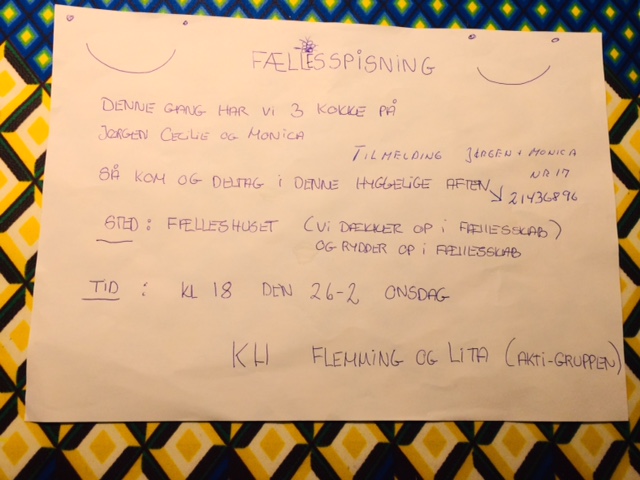 FÆLLESSPISNING
DENNE GANG HAR VI 3 KOKKE PÅ
JØRGEN CECILIE OG MONICA
TILMELDING JØRGEN + MONICA
NR 17
SÅ KOM OG DELTAG I DENNE HYGGELIGE AFTEN
21436896
STED : FÆLLESHUSET (VI DÆKKER OP I FÆLLESSKAB)
OG RYDDER OP I FÆLLESSKAB
TID : KL 18 DEN 26-2 ONSDAG
KH FLEMMING OG LITA (AKTI-GRUPPEN)